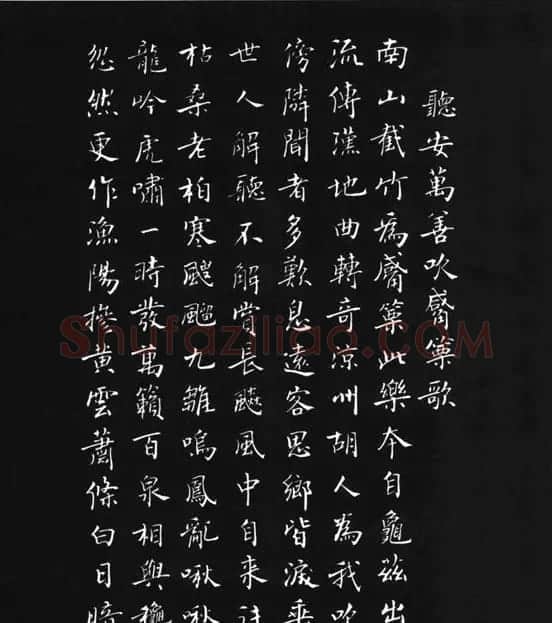 聽安萬善吹觱篥歌
南山截竹為觱篥此樂本自龜茲出
流傳漢地曲轉奇涼州胡人為我吹
傍隣聞者多歎息遠客思鄉皆淚垂
世人解聽不解賞長飇風中自來往
枯桑老柏寒颼飀九雛鳴鳳亂啾啾
龍吟虎嘯一時發萬籟百泉相與穐
忽然更作漁陽摻黄雲蕭條白日暗
Shufaziliao.COM